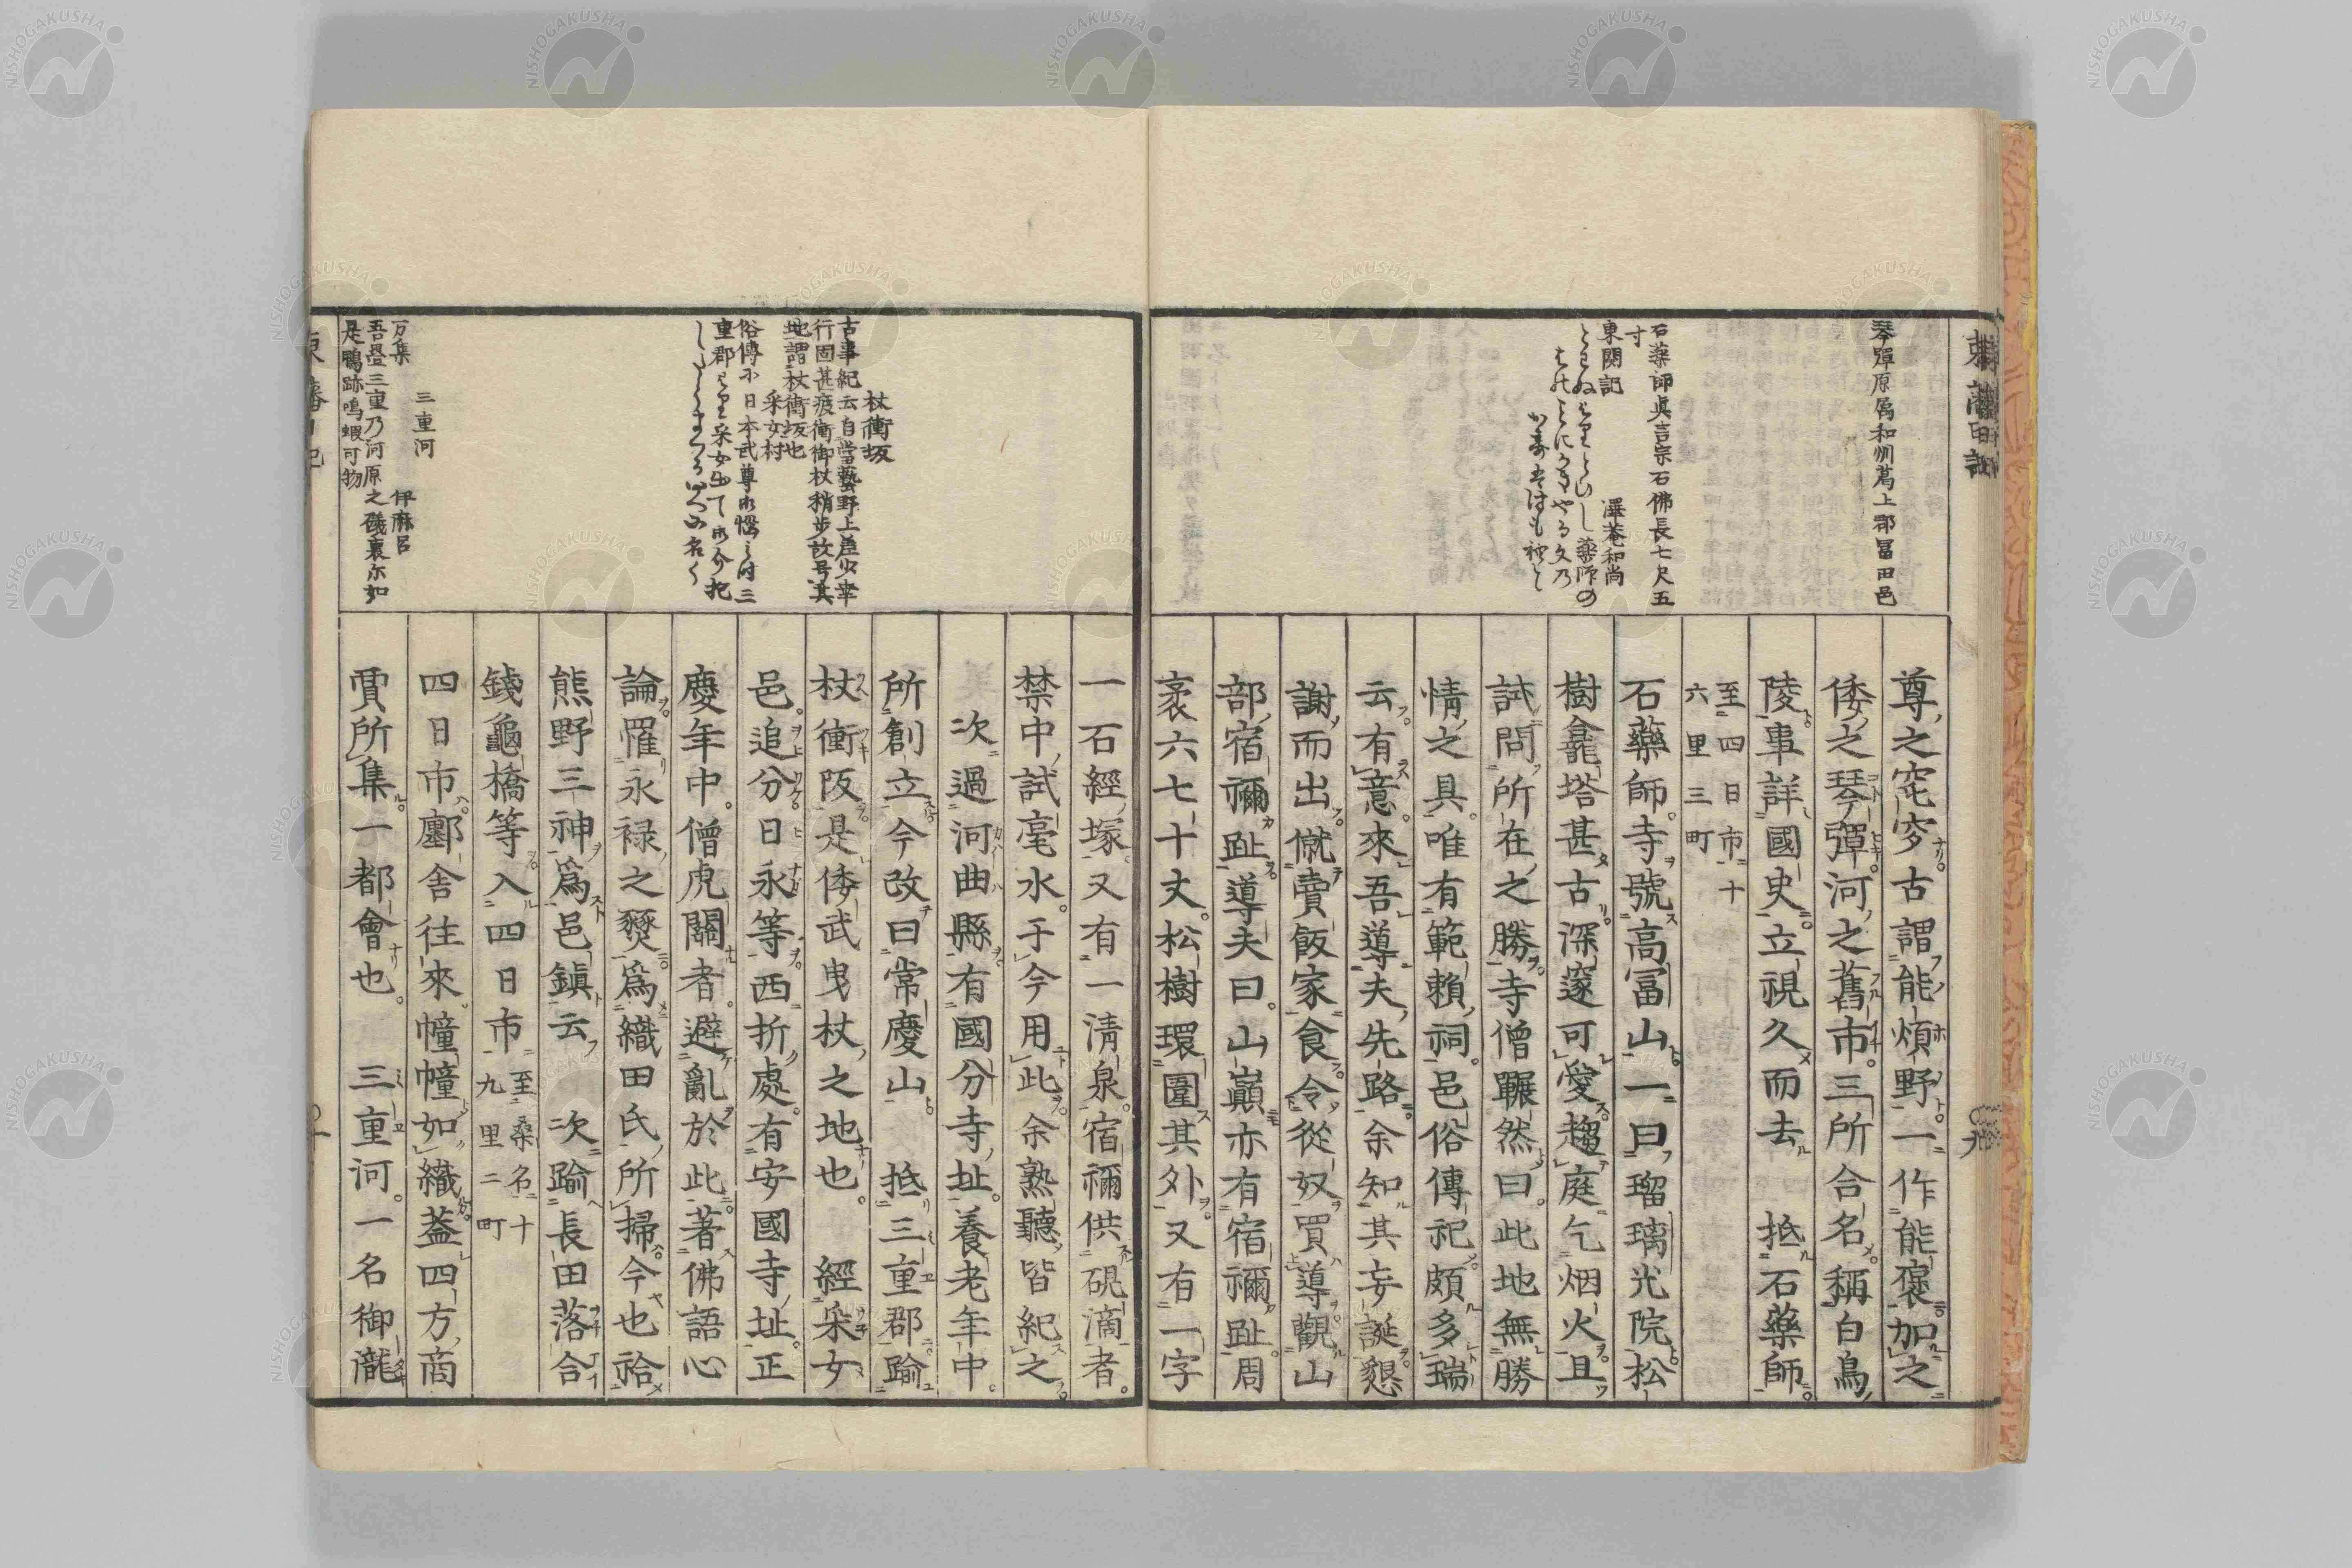 琴彈原属和州葛上郡冨田邑
石薬師真言宗石佛長七尺五
寸
東関記
澤菴和尚
尊之窀穸古謂能煩野一作能褒加之
倭之琴彈河之舊市三所合名稱白鳥
陵事詳國史立視久而去 抵石藥師
至四日市十
六里三町
石藥師寺號高冨山一曰瑠璃光院松
樹龕塔甚古深邃可愛趨庭乞烟火且
試問所在之勝寺僧囅然曰此地無勝
情之具唯有範賴祠邑俗傳祀頗多瑞
云有意來吾導夫先路余知其妄誕懇
謝而出僦賣飯家食令從奴買導觀山
部宿禰趾導夫曰山巓亦有宿禰趾周
袤六七十丈松樹環圍其外又有一字
一石經塚又有一淸泉宿禰供硯滴者
禁中試毫水于今用此余熟聽皆紀之
次過河曲縣有國分寺址養老年中
所創立今改曰常慶山 抵三重郡踰
杖衝阪是倭武曳杖之地也 經采女
邑追分日永等西折處有安國寺址正
慶年中僧虎關者避亂於此著佛語心
論罹永禄之燹爲織田氏所掃今也祫
熊野三神爲邑鎭云 次踰長田落合
錢龜橋等入四日市
至桑名十
九里二町
四日市鄽舎往來幢幢如織葢四方商
賈所集一都會也 三重河一名御瀧
杖衝坂
古事紀云自當藝野上差少幸
行固甚疲衝御杖稍歩故号其
地謂杖衝坂也
采女村
三重河
万集
伊麻呂
吾疊三重乃河原之礒裏尓如
是鴨跡鳴蝦可物